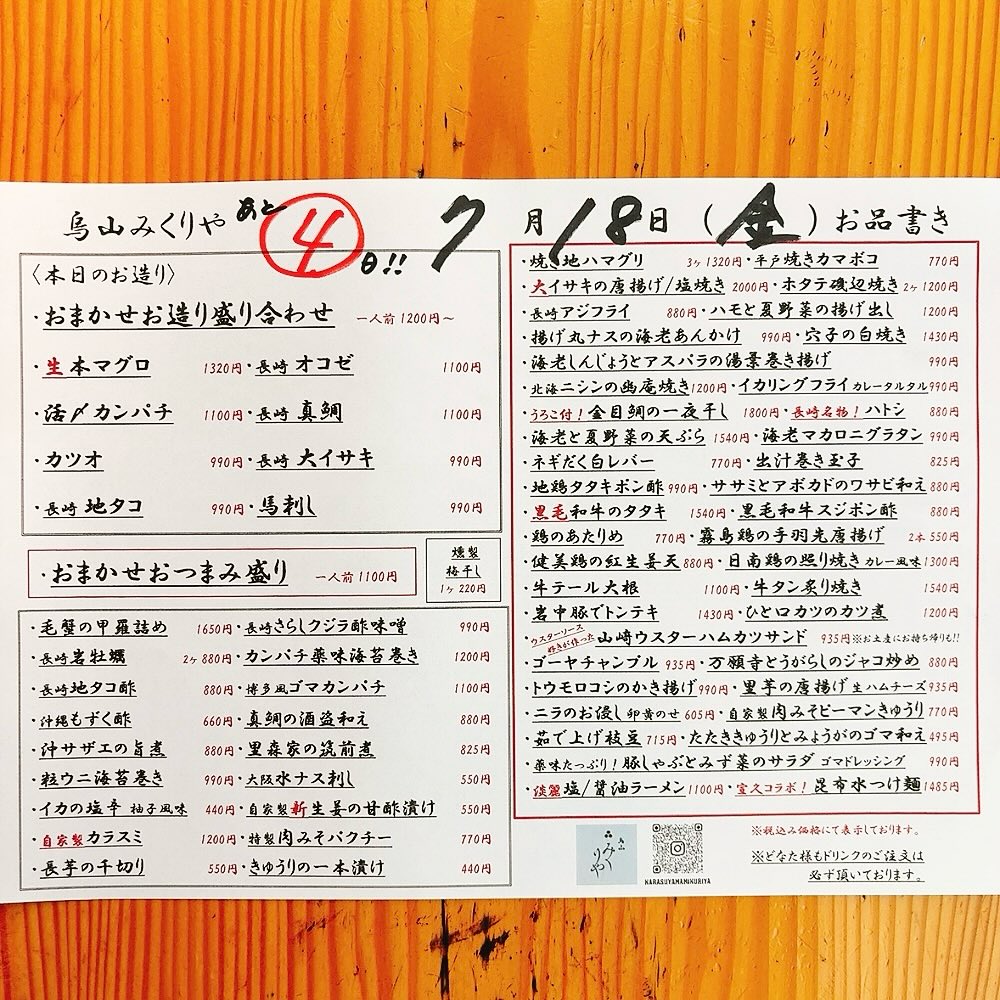 烏山みくりや あと 4 日!! 7月18日(金)お品書き
〈本日のお造り〉
・おまかせお造り盛り合わせ 一人前1200円〜
・生本マグロ 1320円・長崎 オコゼ 1100円
・活〆カンパチ 1100円・長崎 真鯛 1100円
・カツオ 990円・長崎 大イサキ 990円
・長崎 地タコ 990円・馬刺し 990円
・おまかせおつまみ盛り 一人前1100円
燻製
梅干し
1ヶ220円
・毛蟹の甲羅詰め 1650円・長崎さらしクジラ酢味噌 990円
・長崎岩牡蠣 2ヶ880円・カンパチ薬味海苔巻き 1200円
・長崎地タコ酢 880円・博多風ゴマカンパチ 1100円
・沖縄もずく酢 660円・真鯛の酒盗和え 880円
・沖サザエの旨煮 880円・里森家の筑前煮 825円
・粒ウニ海苔巻き 990円・大阪水ナス刺し 550円
・イカの塩辛 柚子風味 440円・自家製新生姜の甘酢漬け 550円
・自家製カラスミ 1200円・特製肉みそパクチー 770円
・長芋の千切り 550円・きゅうりの一本漬け 440円
・焼き地ハマグリ 3ヶ1320円・平戸焼きカマボコ 770円
・大イサキの唐揚げ/塩焼き 2000円・ホタテ磯辺焼き 2ヶ1200円
・長崎アジフライ 880円・ハモと夏野菜の揚げ出し 1200円
・揚げ丸ナスの海老あんかけ 990円・穴子の白焼き 1430円
・海老しんじょうとアスパラの湯景巻き揚げ 990円
・北海ニシンの幽庵焼き 1200円・イカリングフライ カレータルタル 990円
・うろこ付!金目鯛の一夜干し 1800円・長崎名物!ハトシ 880円
・海老と夏野菜の天ぷら 1540円・海老マカロニグラタン 990円
・ネギだく白レバー 770円・出汁巻き玉子 825円
・地鶏タタキポン酢 990円・ササミとアボカドのワサビ和え 880円
・黒毛和牛のタタキ 1540円・黒毛和牛スジポン酢 880円
・鶏のあたりめ 770円・霧島鶏の手羽先唐揚げ 2本550円
・健美鶏の紅生姜天 880円・日南鶏の照り焼き カレー風味 1300円
・牛テール大根 1100円・牛タン炙り焼き 1540円
・岩中豚でトンテキ 1430円・ひと口カツのカツ煮 1200円
・ウスターソース好きが作った 山崎ウスターハムカツサンド 935円※お土産にお持ち帰りも!!
・ゴーヤチャンプル 935円・万願寺とうがらしのジャコ炒め 880円
・トウモロコシのかき揚げ 990円・里芋の唐揚げ 生ハムチーズ 935円
・ニラのお浸し 卵黄のせ 605円・自家製肉みそピーマンきゅうり 770円
・茹で上げ枝豆 715円・たたききゅうりとみょうがのゴマ和え 495円
・薬味たっぷり!豚しゃぶとみず菜のサラダ ゴマドレッシング 990円
・淡麗 塩/醤油ラーメン 1100円・室久コラボ!昆布水つけ麺 1485円
みくりや
KARASUYAMAMIKURIYA
※税込み価格にて表示しております。
※どなた様もドリンクのご注文は
必ず頂いております。